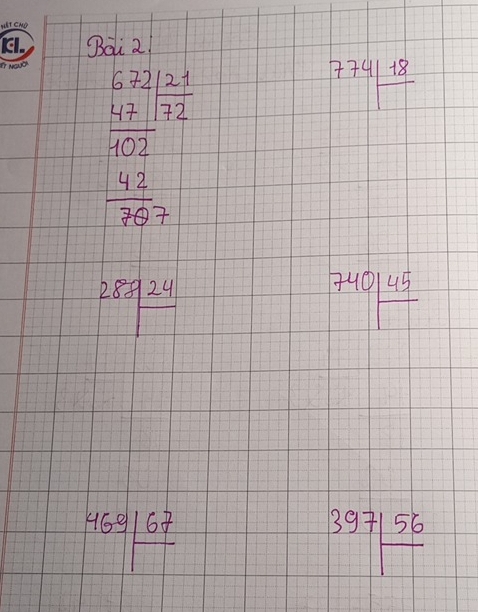 NÉT CHỮ
KL.
ẾT NGƯỜI
Bài 2:
672 21
47 72
102
42
707
774 18
288 24
740 45
469 67
397 56